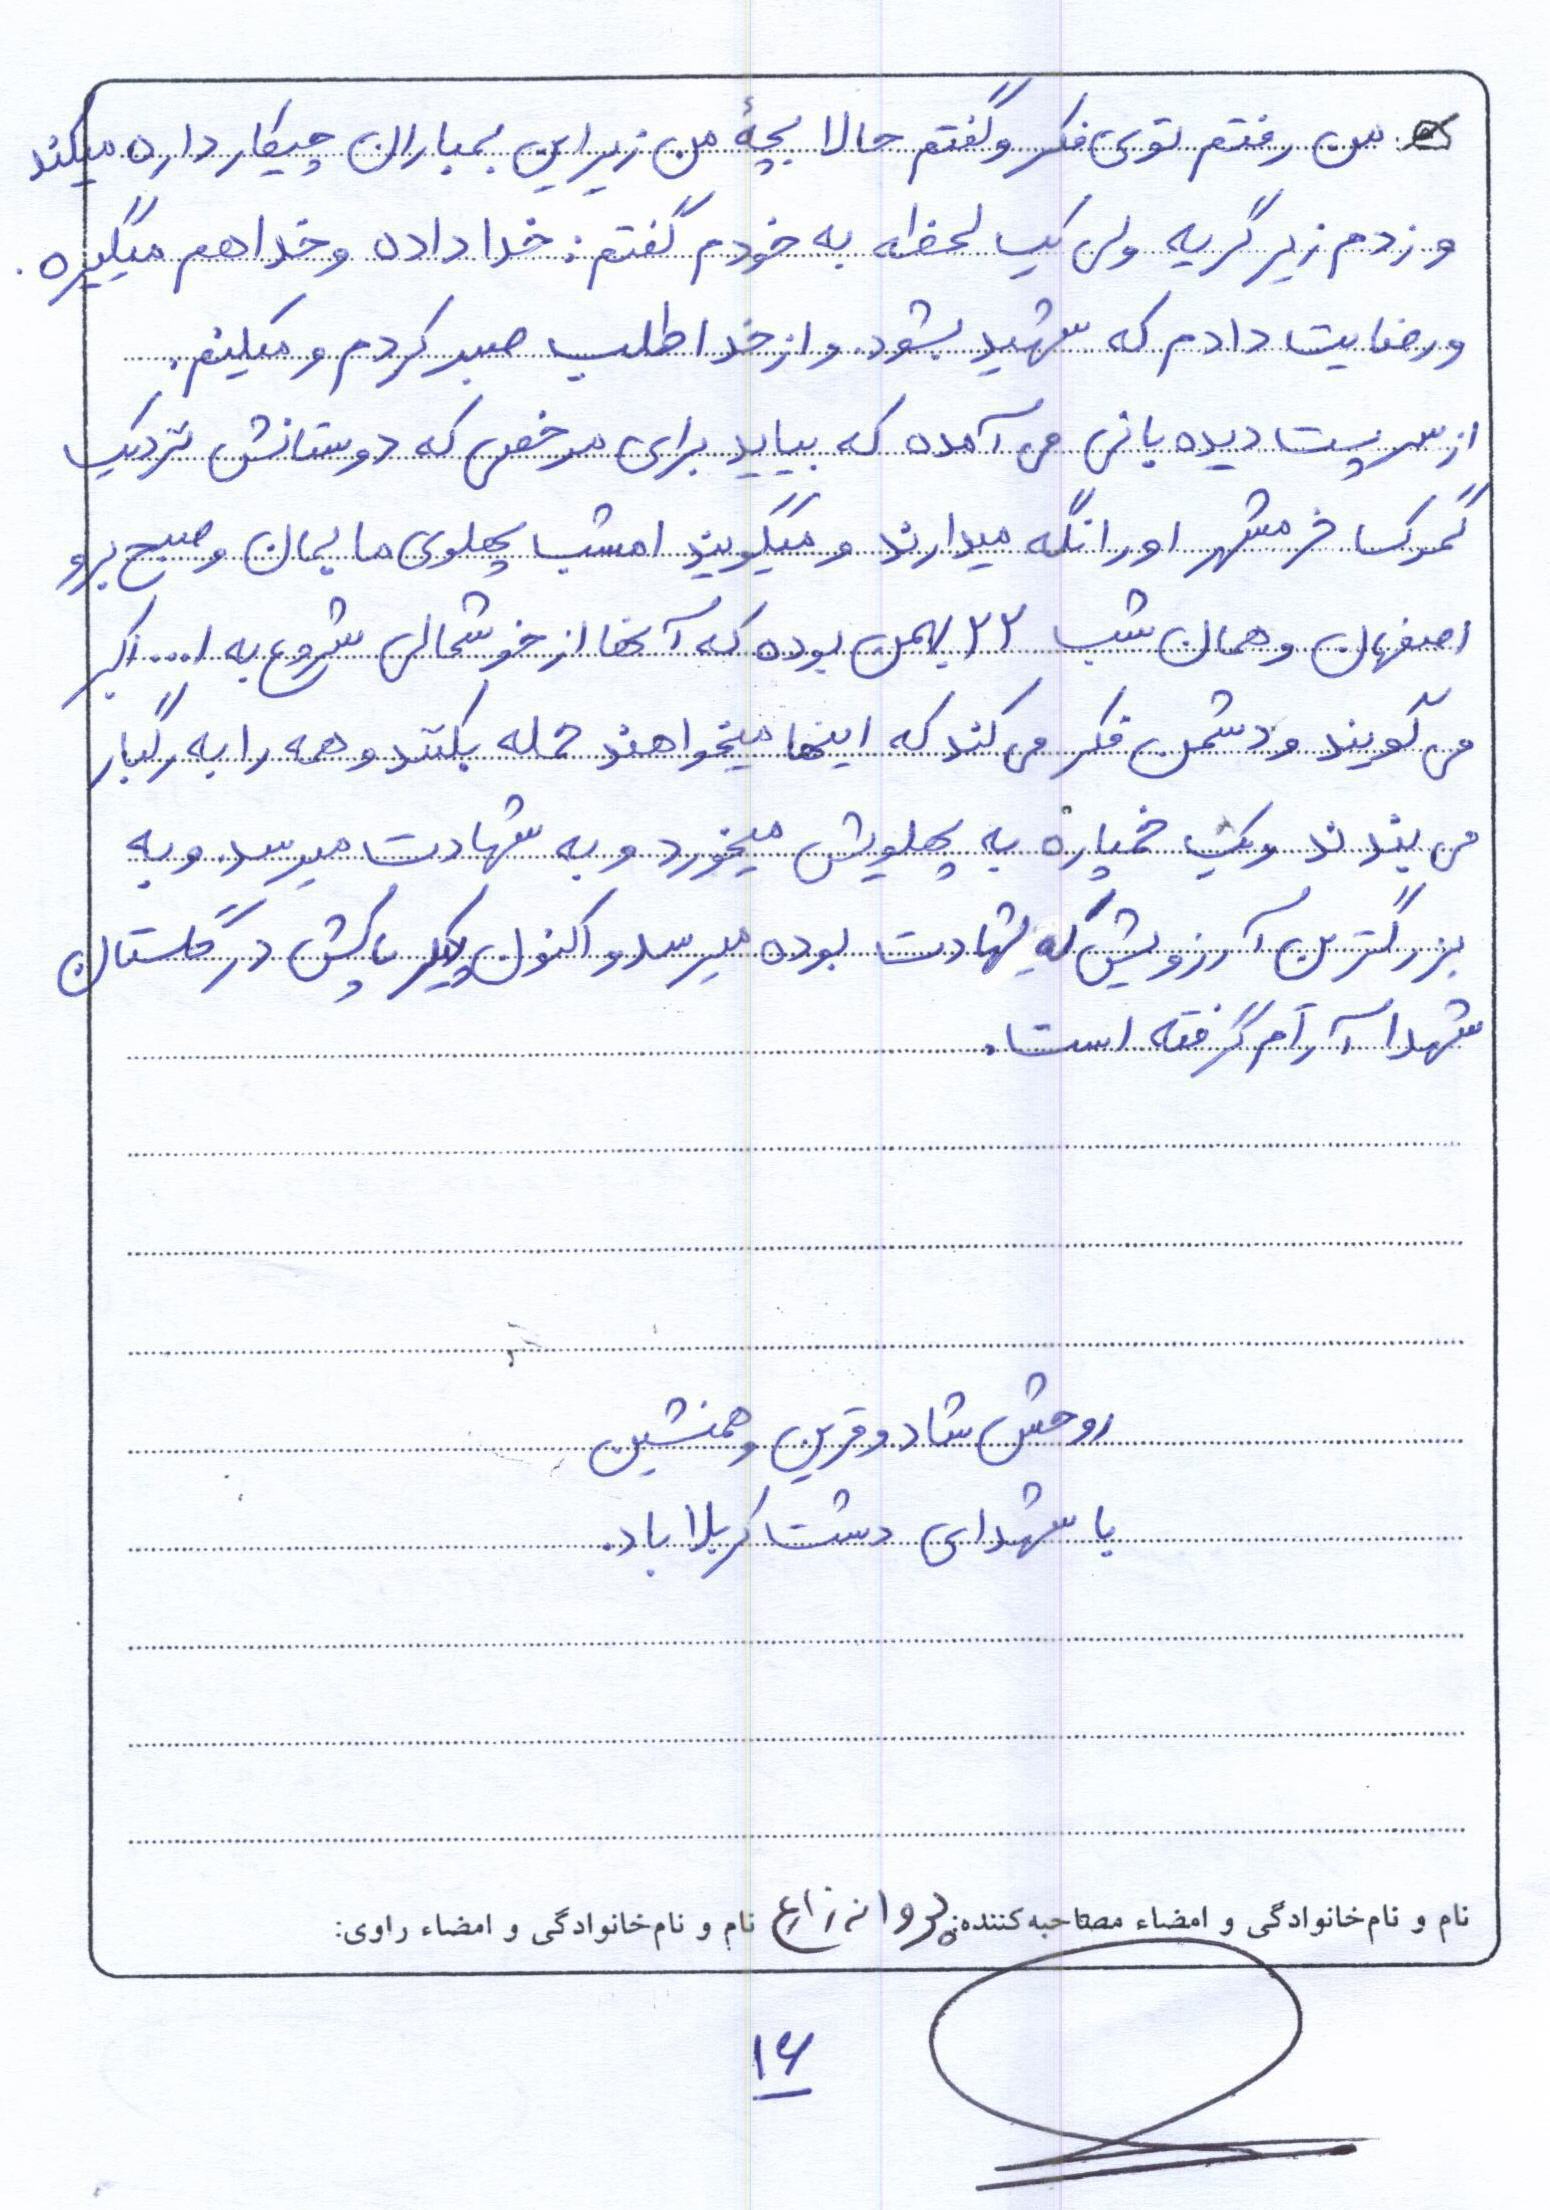 من رفتم توی فکر و گفتم حالا بچهٔ من زیر این بمباران چیکار داره میکند
و زدم زیر گریه ولی یک لحظه به خودم گفتم: خدا داده و خدا هم میگیره.
و رضایت دادم که شهید بشود. و از خدا طلب صبر کردم و میکنم.
از سر پست دیده بانی می آمده که بیاید برای مرخصی که دوستانش نزدیک
گمرک خرمشهر او را نگه میدارند و میگویند امشب پهلوی ما بمان و صبح برو
اصفهان و همان شب ۲۲ بهمن بوده که آنها از خوشحالی شروع به ا... اکبر
می گویند و دشمن فکر می کند که اینها میخواهند حمله بکنند و همه را به رگبار
می بندند و یک خمپاره به پهلویش میخورد و به شهادت میرسد. و به
بزرگترین آرزویش که شهادت بوده میرسد و اکنون پیکر پاکش در گلستان
شهدا آرام گرفته است.
روحش شاد و قرین و همنشین
با شهدای دشت کربلا باد.
نام و نام‌خانوادگی و امضاء مصاحبه‌کننده: پروانه زارع نام و نام‌خانوادگی و امضاء راوی:
۱۶